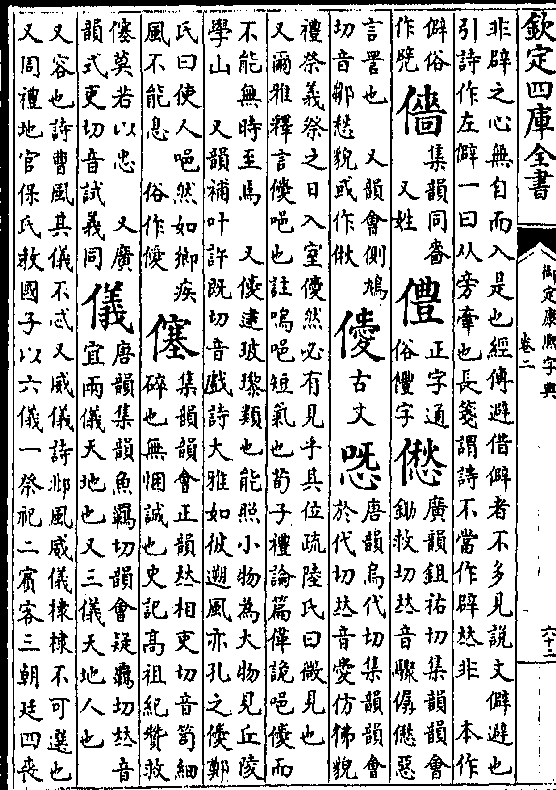 欽定四庫全書
御定康熙字典
卷二
六十二
非辟之心無自而入是也經傳避借僻者不多見說文僻避也
引詩作左僻一曰从旁牽也長箋謂詩不當作辟𠀤非 本作
僻俗
作
集韻同嗇
又姓
僼
正字通
俗 字
僽
廣韻鉏祐切集韻韻會
鋤救切𠀤音驟僝僽惡
言詈也 又韻會側鳩
切音鄒愁貌或作㑳
僾
古文
㤅
唐韻烏代切集韻韻會
於代切𠀤音愛仿佛貌
禮祭義祭之日入室僾然必有見乎其位疏陸氏曰微見也
又爾雅釋言僾唈也註嗚唈短氣也荀子禮論篇愅詭唈僾而
不能無時至焉 又僾逮玻瓈類也能照小物為大物見丘陵
學山 又韻補叶許既切音戲詩大雅如彼遡風亦孔之僾鄭
氏曰使人唈然如鄉疾
風不能息 俗作僾
僿
集韻韻會正韻𠀤相吏切音笥細
碎也無悃誠也史記高祖紀贊救
僿莫若以忠 又廣
韻式吏切音試義同
儀
唐韻集韻魚羈切韻會疑羈切𠀤音
宜兩儀天地也又三儀天地人也
又容也詩曹風其儀不忒又威儀詩邶風威儀棣棣不可選也
又周禮地官保氏敎國子以六儀一祭祀二賓客三朝廷四喪